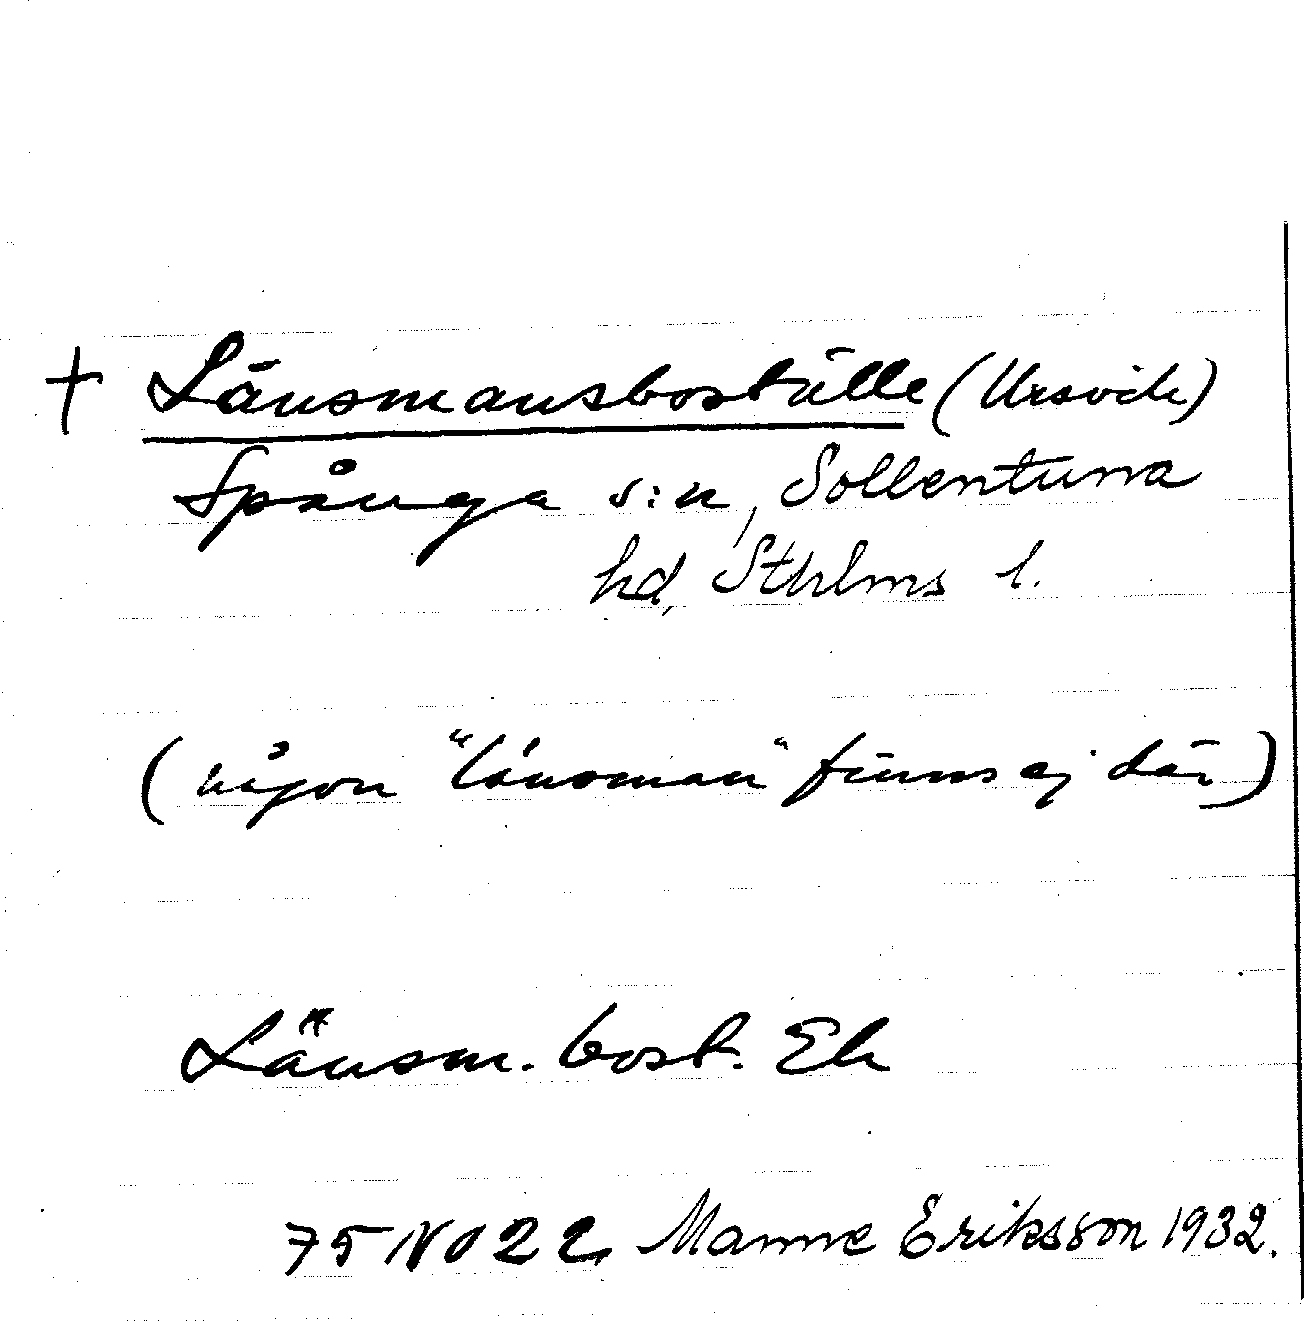 † Länsmansboställe (Ursvik)
Spånga s:n, Sollentuna
hd, Sthlms l.
(någon "länsman" finns ej där)
Länsm. bost. Ek
75 NO 22, Manne Eriksson 1932.